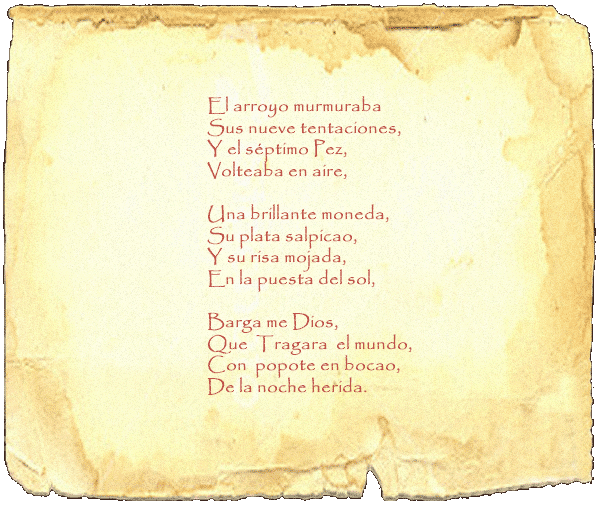 El arroyo murmuraba
Sus nueve tentaciones,
Y el séptimo Pez,
Volteaba en aire,
Una brillante moneda,
Su plata salpicao,
Y su risa mojada,
En la puesta del sol,
Barga me Dios,
Que Tragara el mundo,
Con popote en bocao,
De la noche herida.